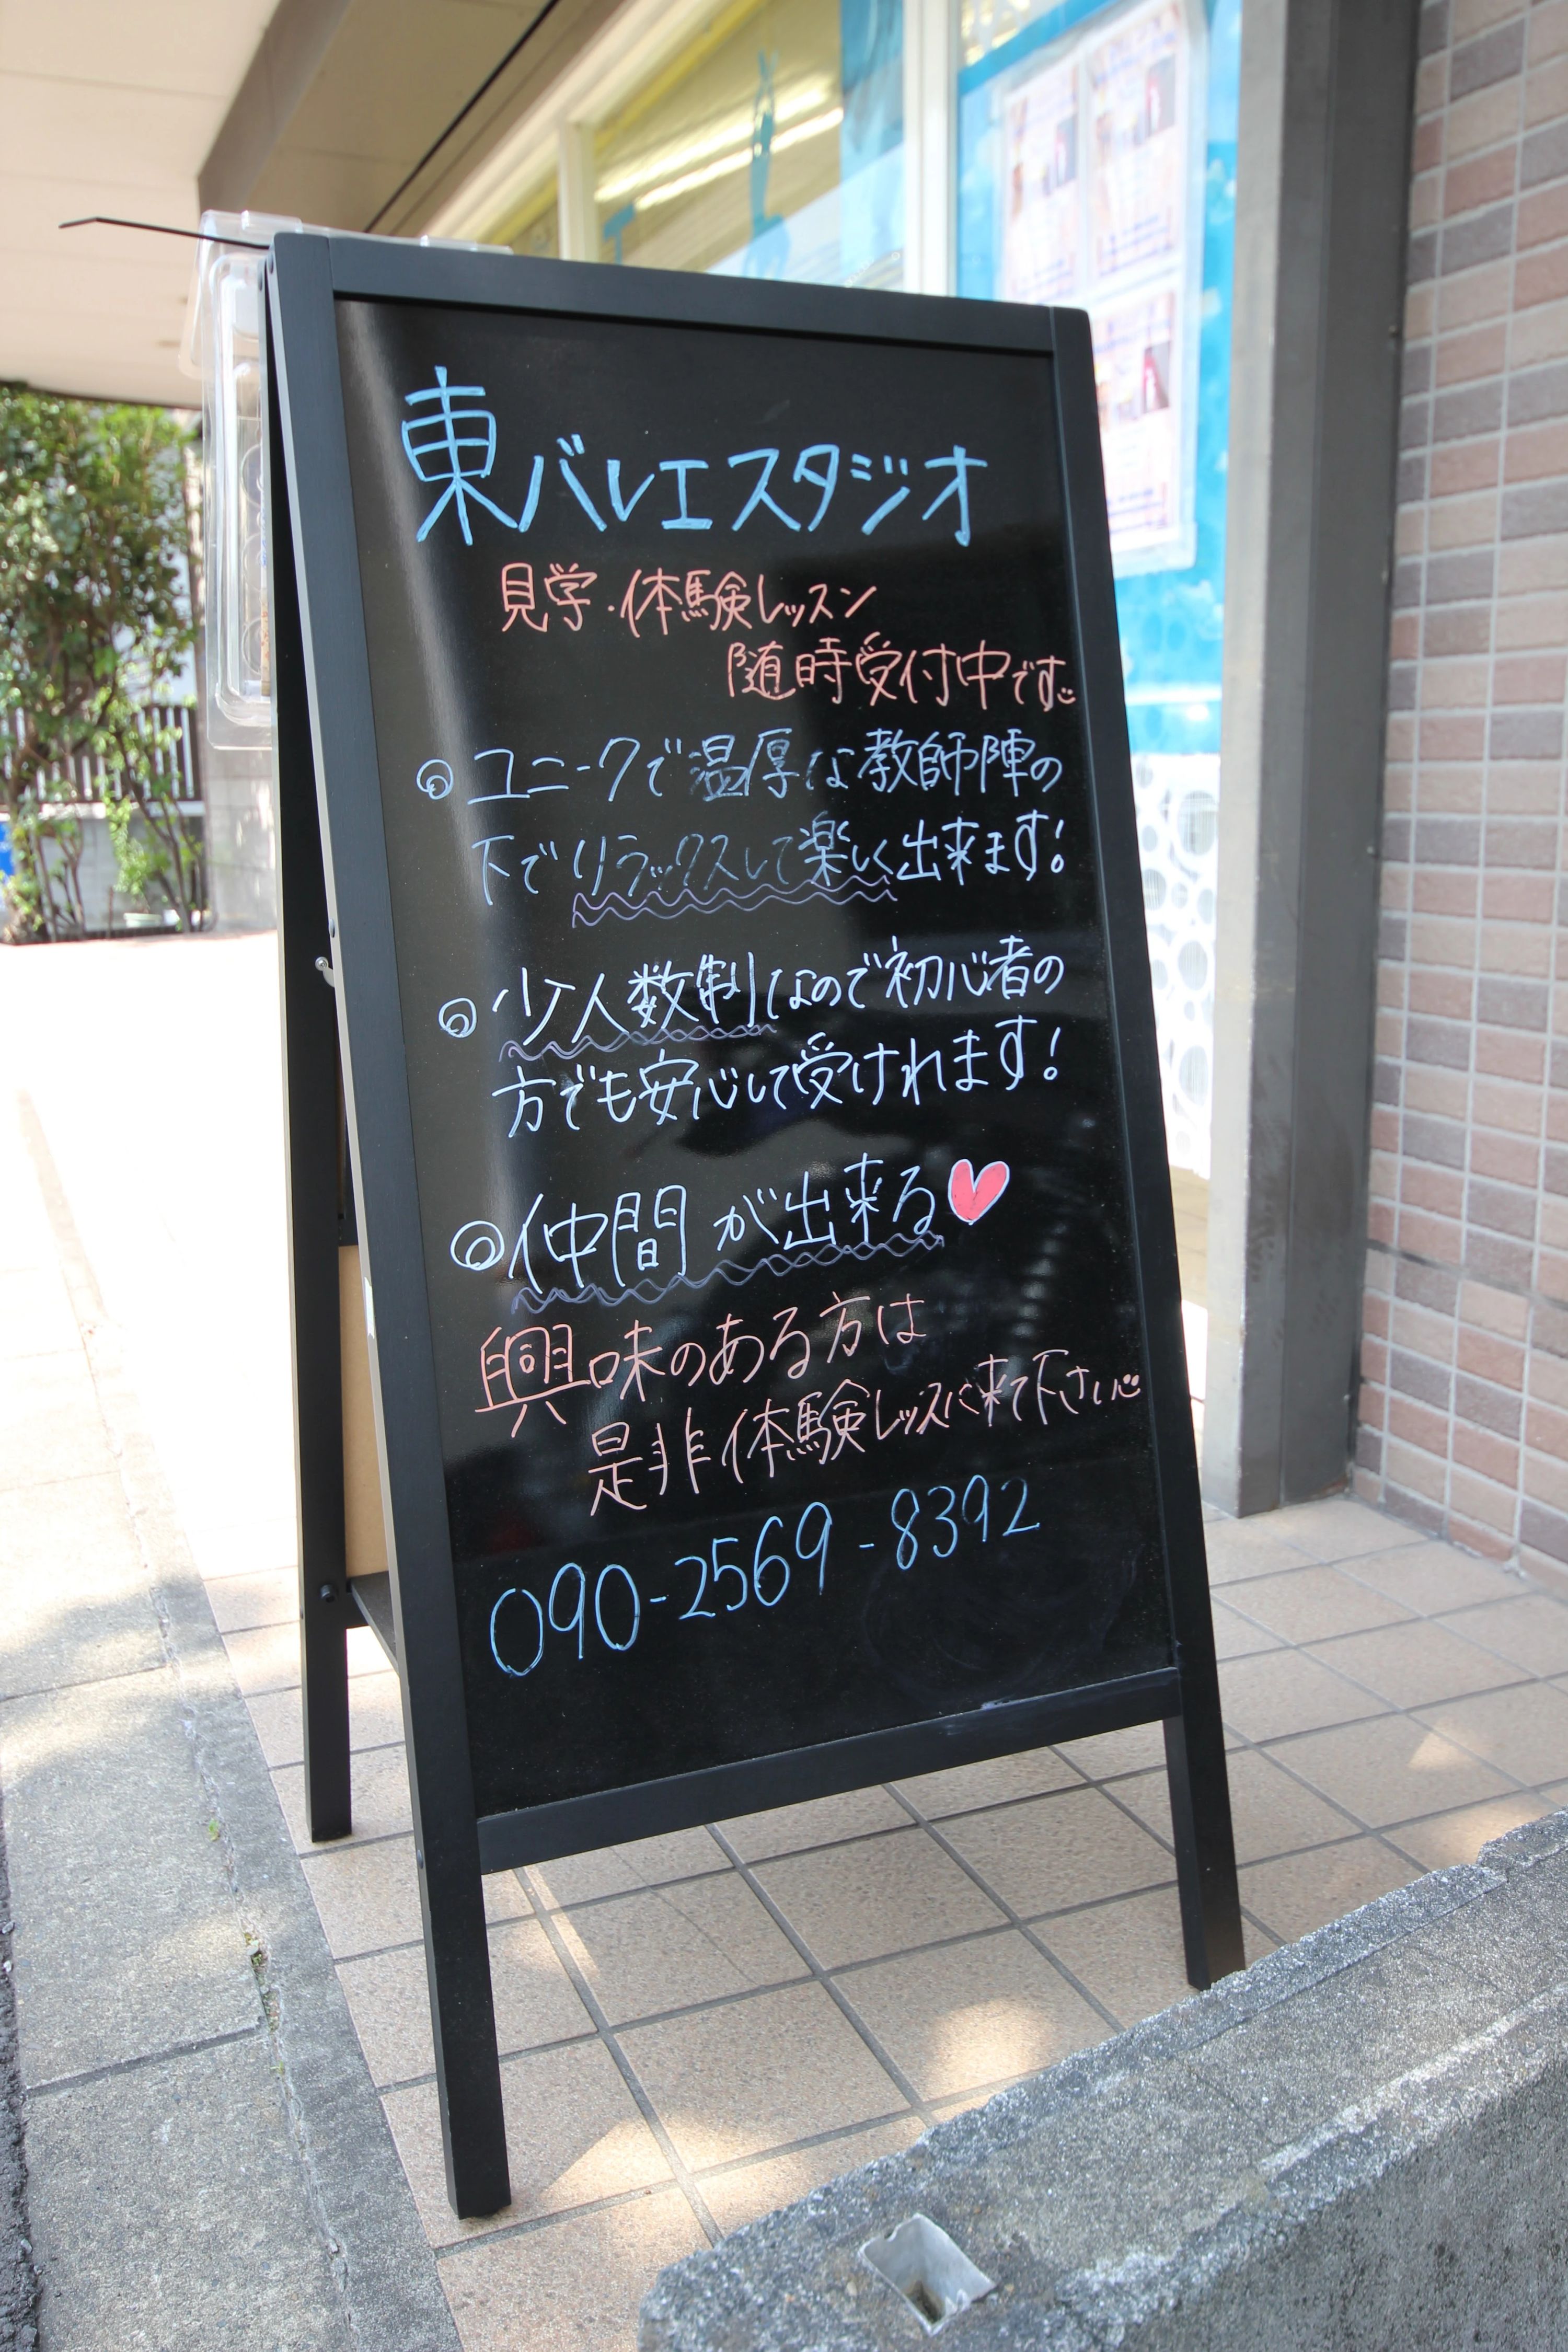 東バレエスタジオ
見学・体験レッスン
随時受付中です
◎ユニークで温厚な教師陣の
下でリラックスして楽しく出来ます!
◎少人数制なので初心者の
方でも安心して受けれます!
◎仲間が出来る♥
興味のある方は
是非体験レッスンに来て下さい
090-2569-8392